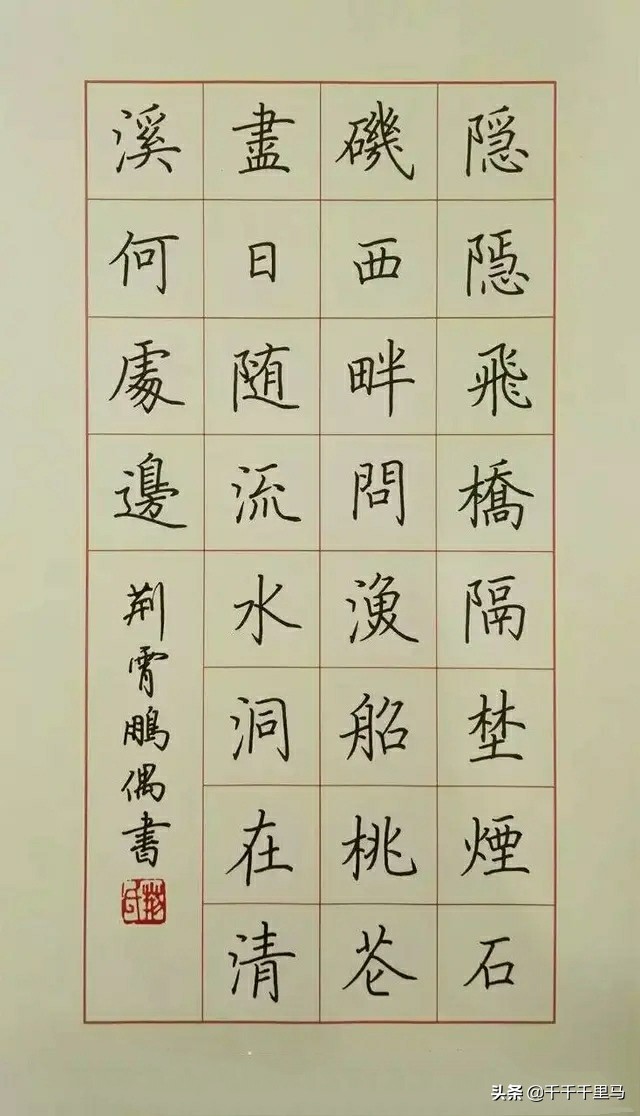 隱隱飛橋隔埜煙石
磯西畔問漁船桃花
盡日随流水洞在清
溪何處邊
荆霄鵬偶書
荆氏
头条 @千千千里马